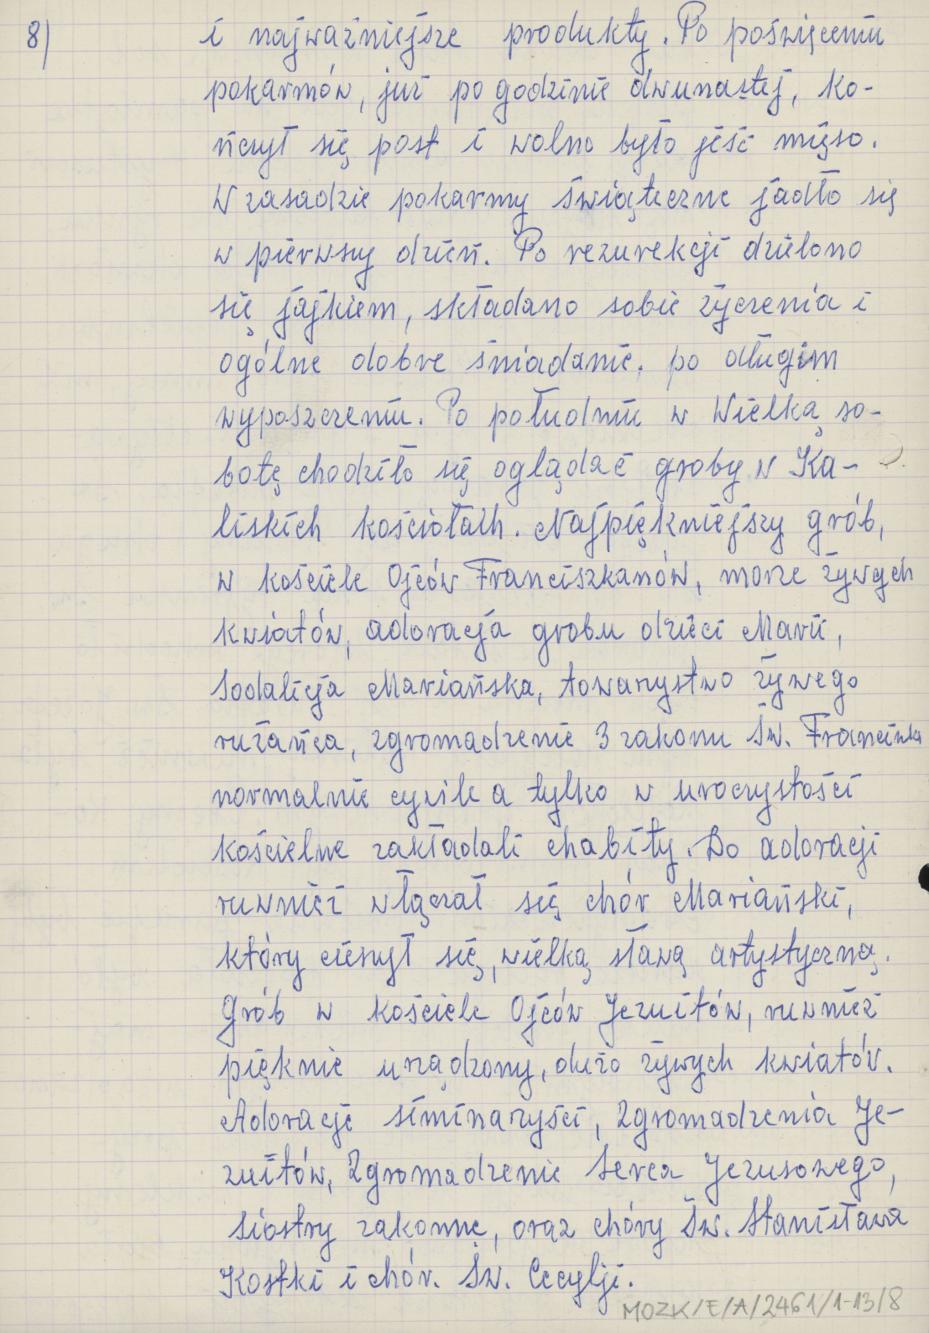 8)
i najważniejsze produkty. Po poświęceniu
pokarmów, już po godzinie dwunastej, ko-
ńczył się post i wolno było jeść mięso.
W zasadzie pokarmy świąteczne jadło się
w pierwszy dzień. Po rezurekcji dzielono
się jajkiem, składano sobie życzenia i
ogólne dobre śniadanie, po długim
wyposzczeniu. Po południu w Wielką so-
botę chodziło się oglądać groby w Ka-
liskich kościołach. Najpiękniejszy grób,
w kościele Ojców Franciszkanów, morze żywych
kwiatów, adoracja grobu dzieci Marii,
Sodalicja Mariańska, towarzystwo żywego
rużańca, zgromadzenie 3 zakonu Św. Franciszka
normalnie cywile a tylko w uroczystości
kościelne zakładali chabity. Do adoracji
ruwnież włączał się chór Mariański,
który cieszył się, wielką sławą artystyczną.
Grób w kościele Ojców Jezuitów, ruwnież
pięknie urządzony, dużo żywych kwiatów.
Adoracje siminaryści, Zgromadzenia Je-
zuitów, Zgromadzenie Serca Jezusowego,
Siostry zakonne, oraz chóry Św. Stanisława
Kostki i chór. Św. Cecylji.
MOZK/E/A/2461/1-13/8